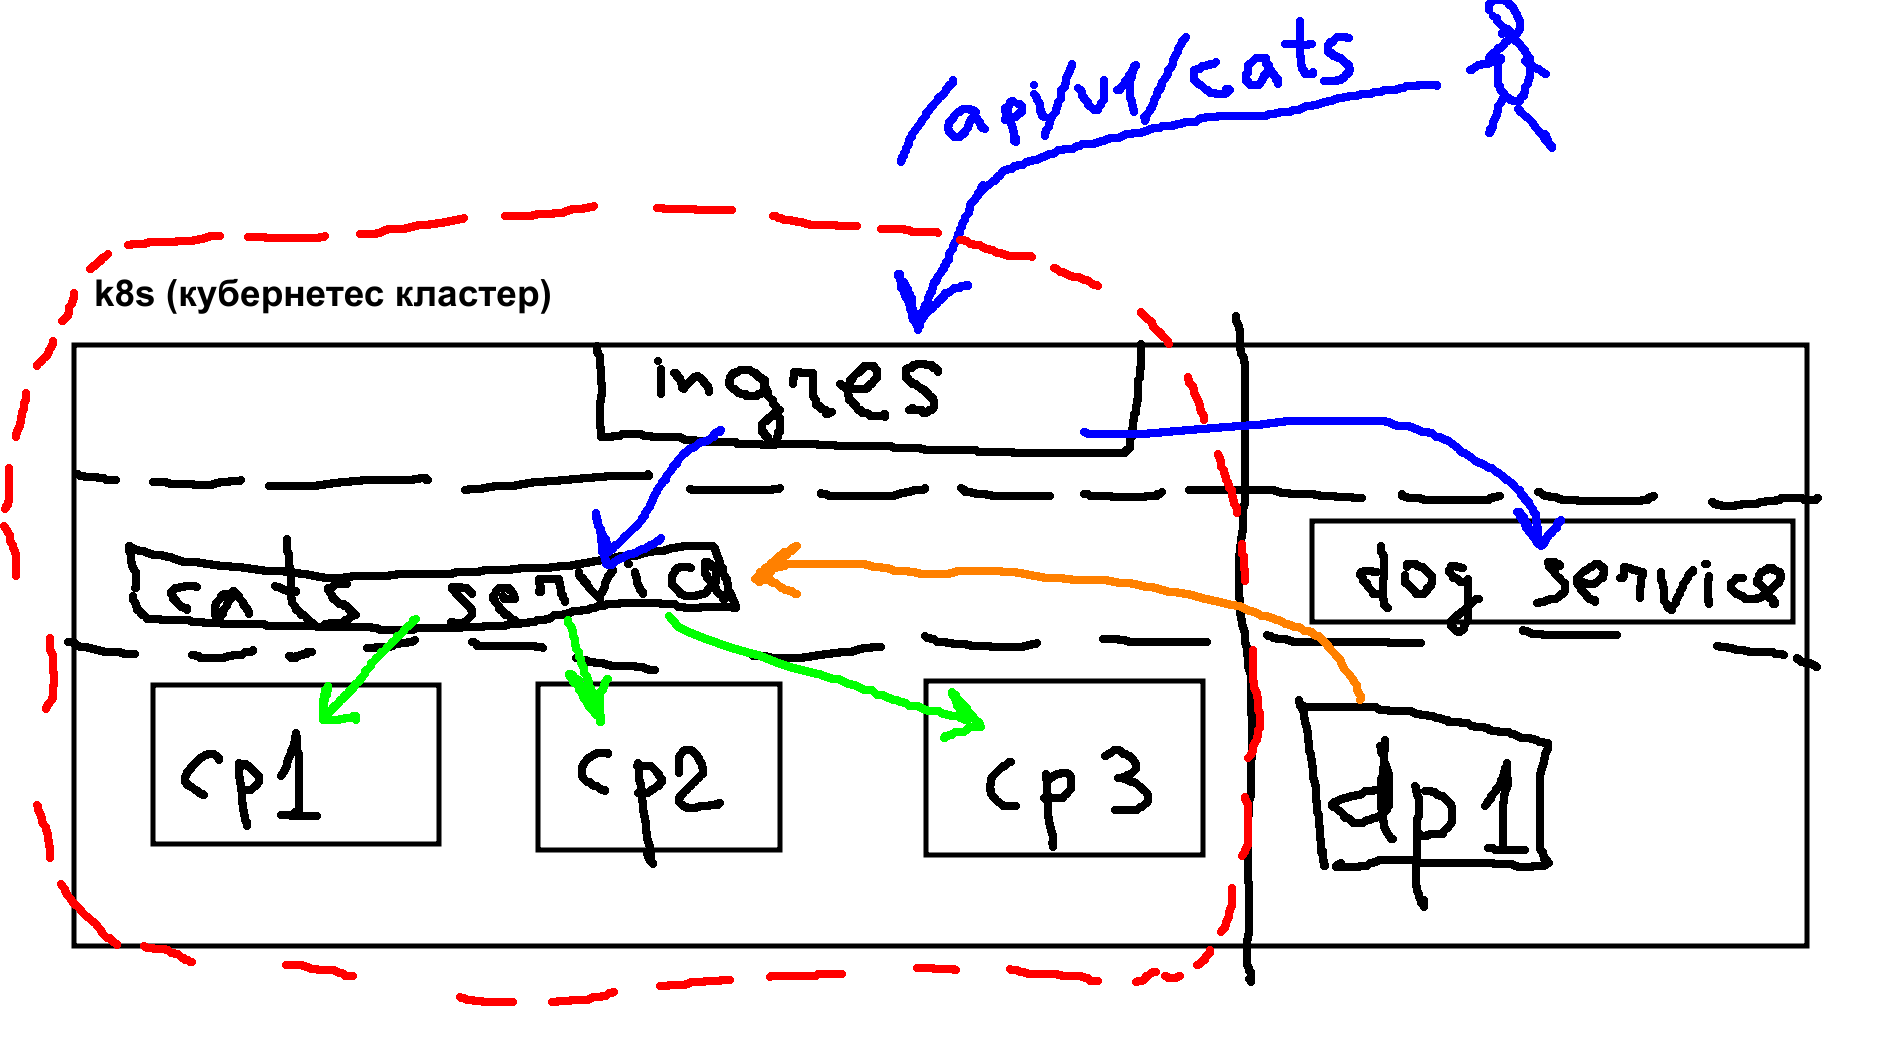 /api/v1/cats
k8s (кубернетес кластер)
ingres
cats service
dog service
cp1
cp2
cp3
dp1